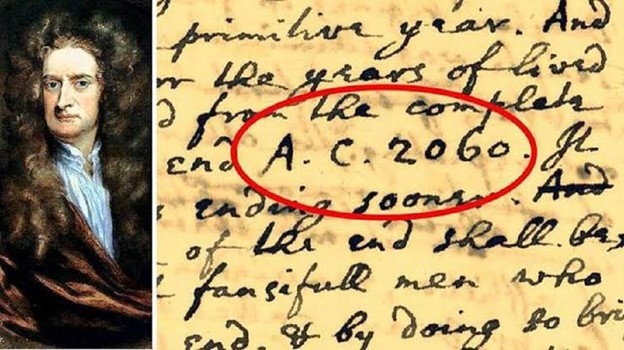 primitive year. And
the years of lived
from the complete
end A. C. 2060. It
ending sooner. And
of the end shall be,
fansifull men who
end, & by doing so bri